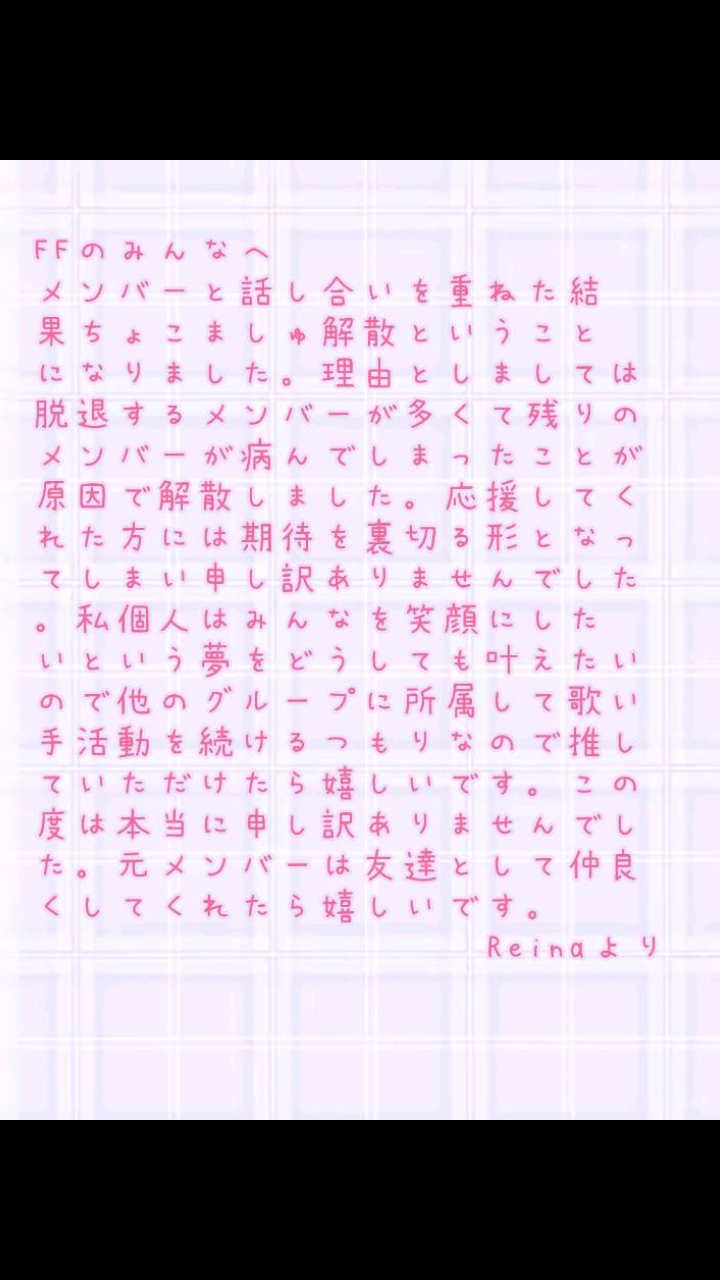 FFのみんなへ
メンバーと話し合いを重ねた結
果ちょこましゅ解散ということ
になりました。理由としましては
脱退するメンバーが多くて残りの
メンバーが病んでしまったことが
原因で解散しました。応援してく
れた方には期待を裏切る形となっ
てしまい申し訳ありませんでした
。私個人はみんなを笑顔にした
いという夢をどうしても叶えたい
ので他のグループに所属して歌い
手活動を続けるつもりなので推し
ていただけたら嬉しいです。この
度は本当に申し訳ありませんでし
た。元メンバーは友達として仲良
くしてくれたら嬉しいです。
Reinaより